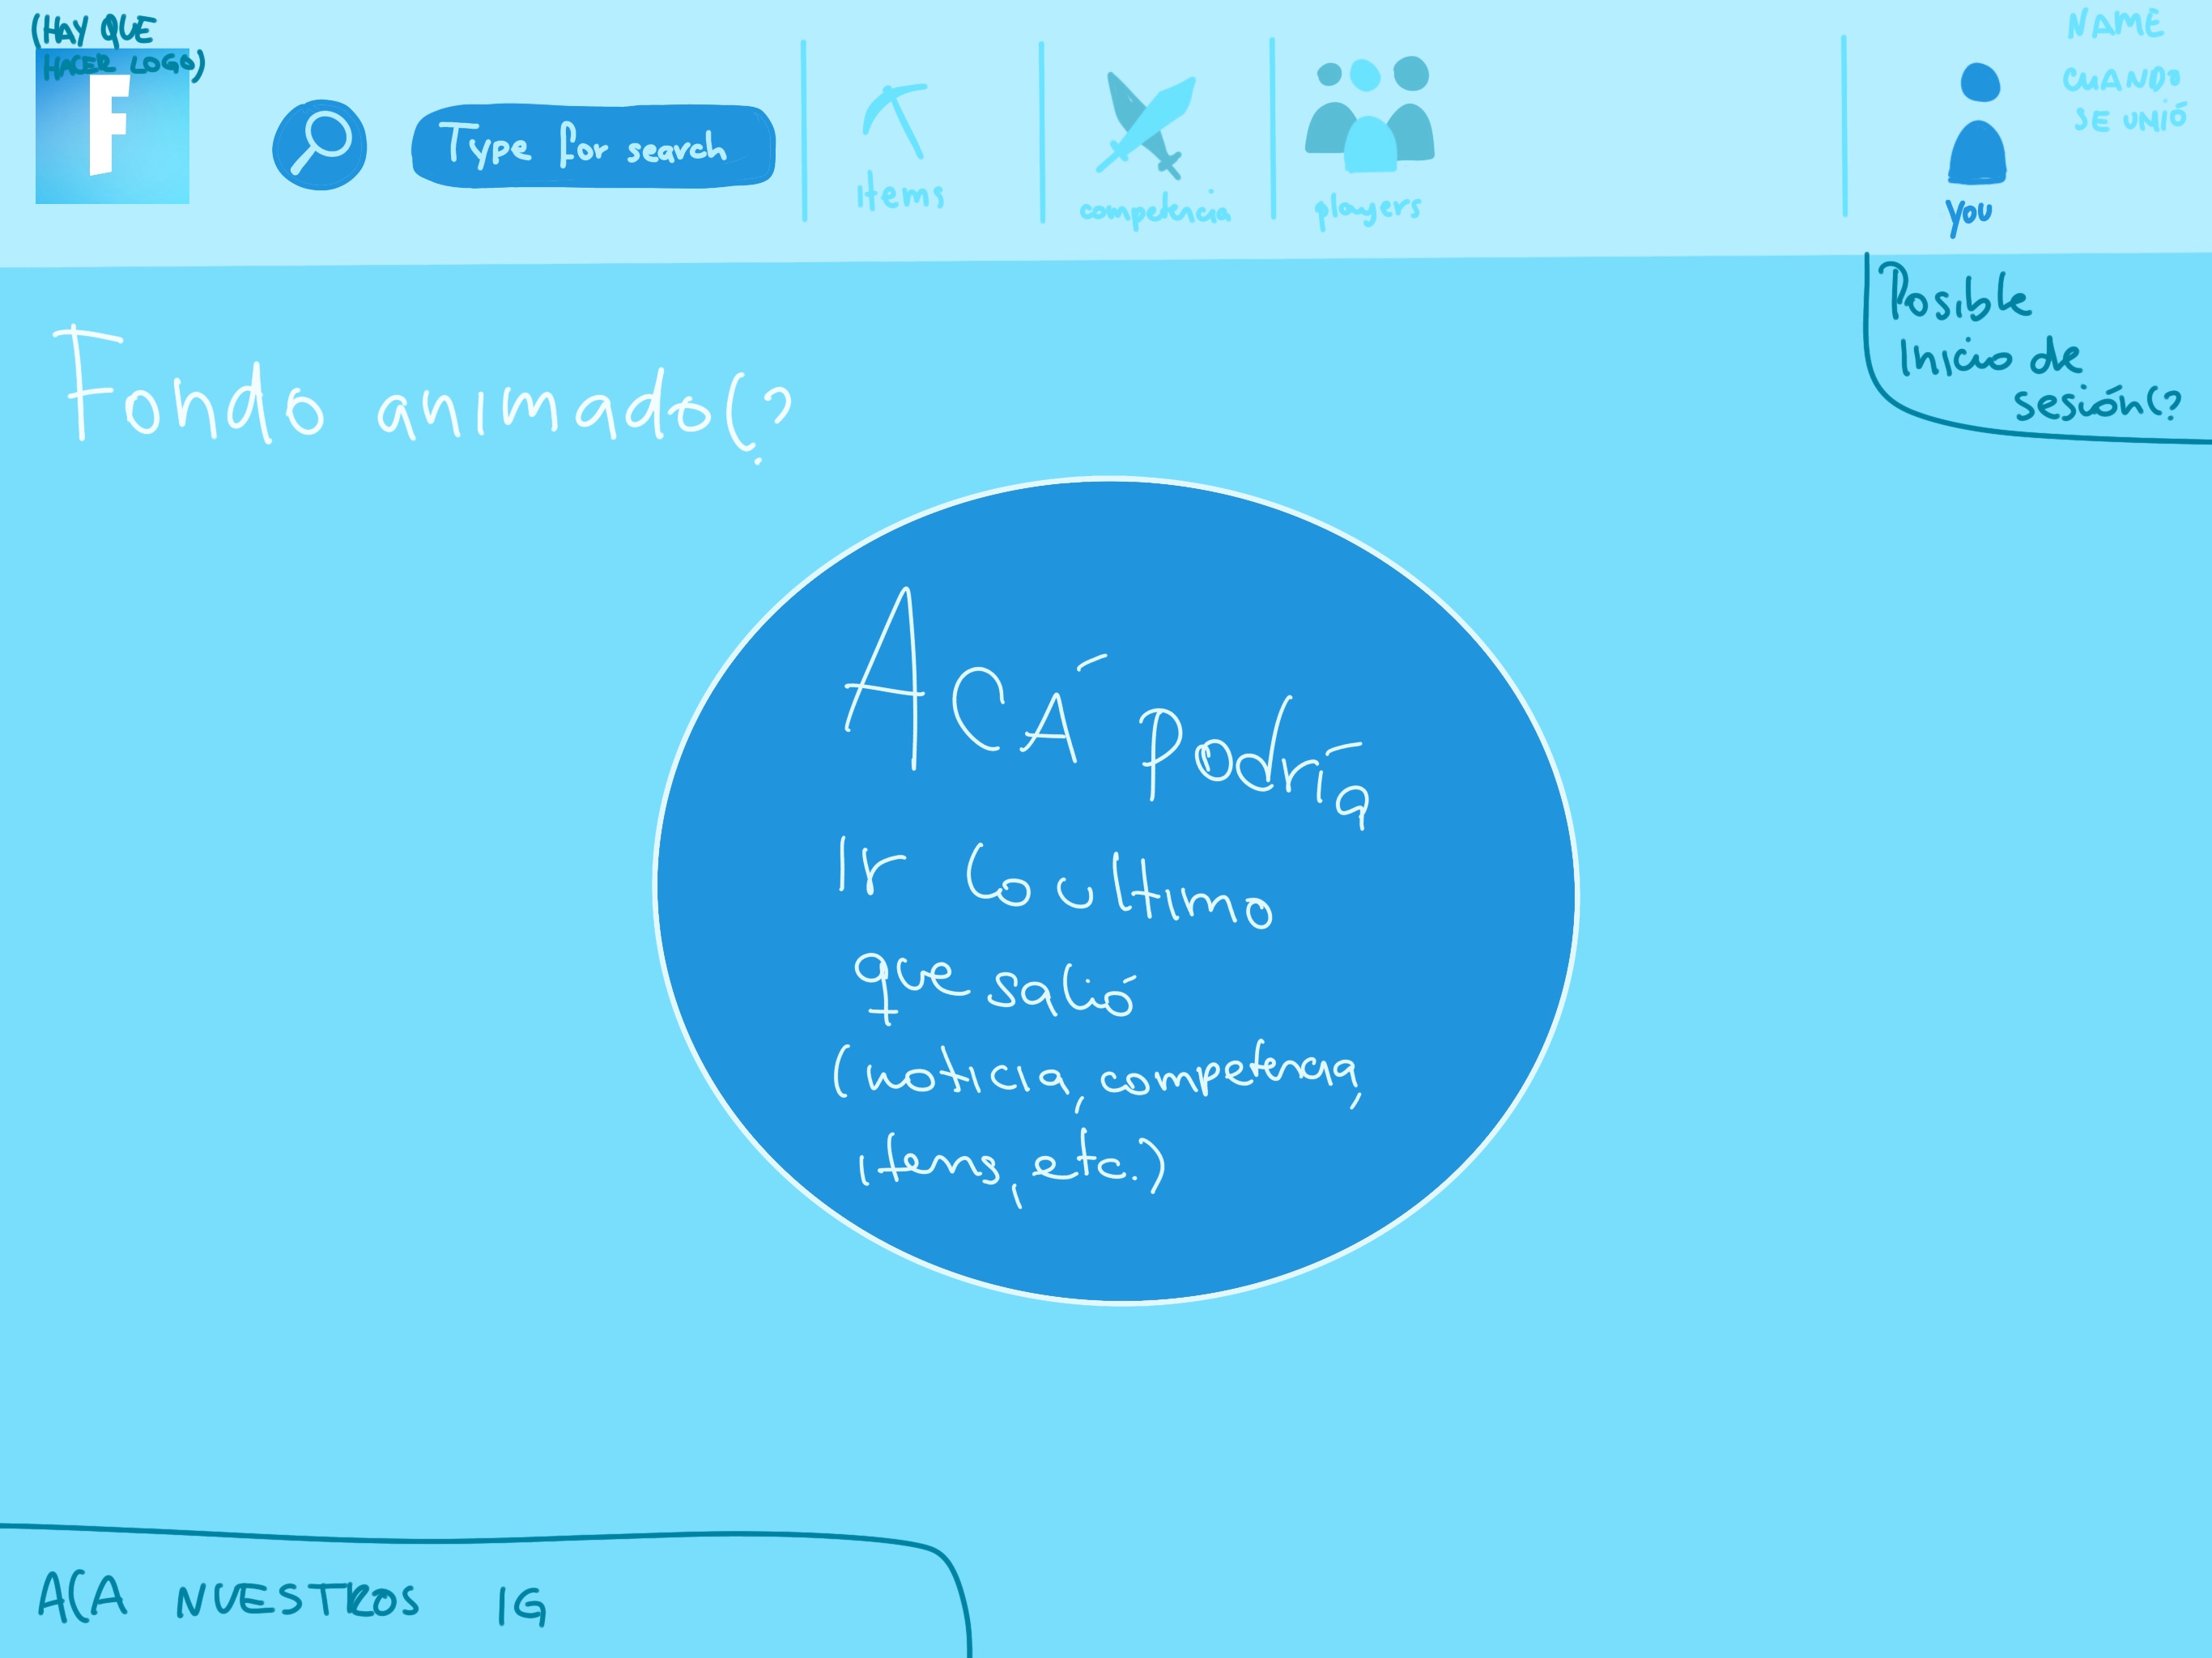 (HAY QUE
HACER LOGO)
F
Type for search
Items
competencia
players
You
NAME
CUANDO
SE UNIÓ
Posible
Inicio de
sesión(?
Fondo animado(?
ACÁ podría
Ir lo ultimo
que salió
(noticia, competencia,
Items, etc.)
ACA NUESTROS IG